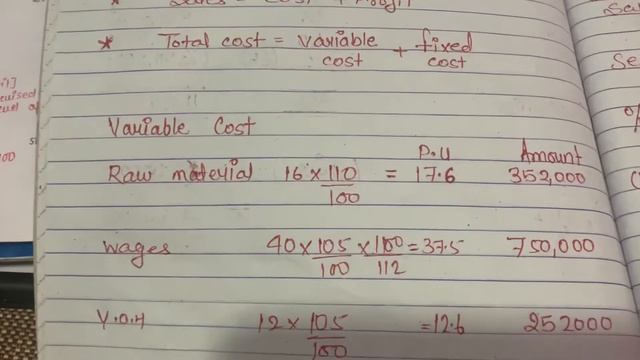 * Sales = Cost + Profit
* Total cost = variable cost + fixed cost
Variable Cost
P.U Amount
Raw material 16 x 110/100 = 17.6 352,000
Wages 40 x 105/100 x 100/112 = 37.5 750,000
V.O.H 12 x 105/100 = 12.6 252000